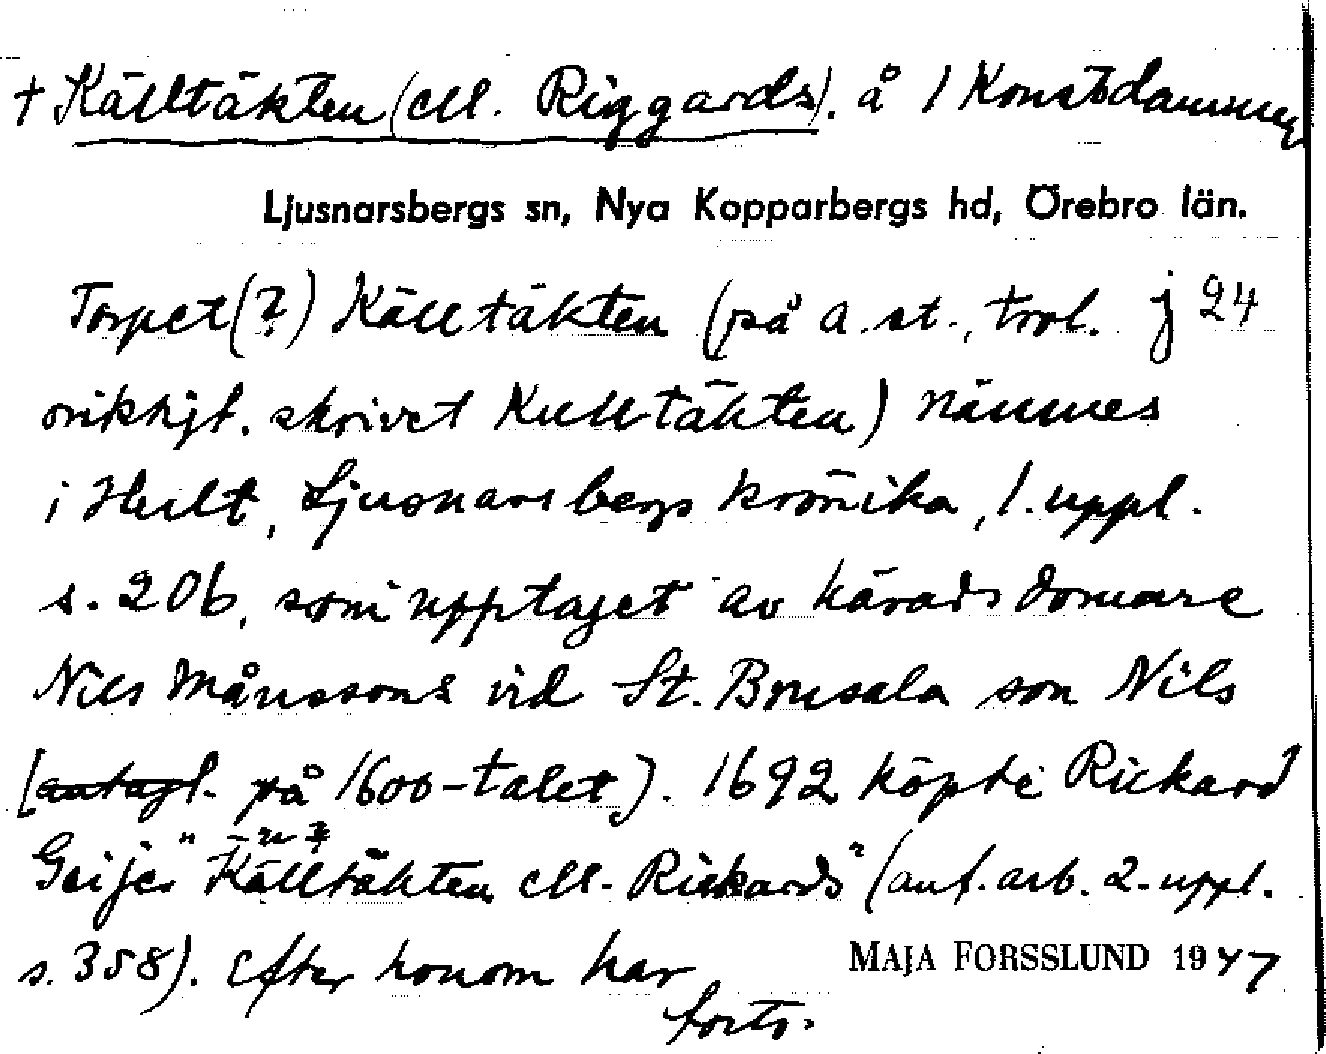 † Källtäkten (ell. Riggards). å 1 Konstdammen
Ljusnarsbergs sn, Nya Kopparbergs hd, Örebro län.
Torpet(?) Källtäkten (på a. st., trol. j 24
oriktigt. skrivet Kulltäkten) nämnes
i Hult, Ljusnarsbergs krönika, 1. uppl.
s. 206, som upptaget av häradsdomare
Nils Månssons vid St. Brusala son Nils
[antagl. på 1600-talet). 1692 köpte Rickard
Geijer "Källtäkten ell. Rickards" (anf. arb. 2. uppl.
s. 358). Efter honom har
MAJA FORSSLUND 1947
forts.